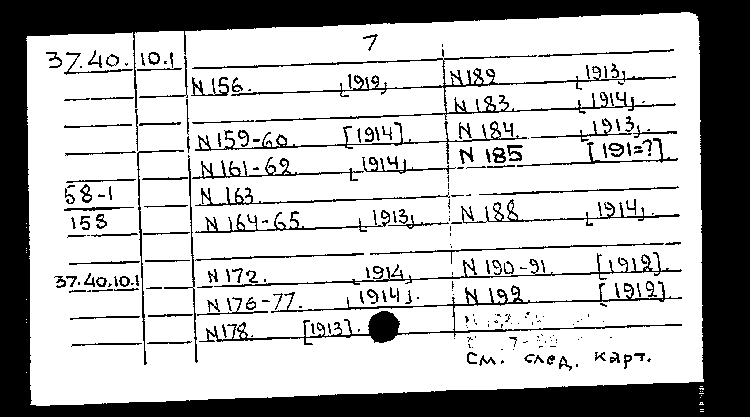 37.40. 10.1 7
N 156. ⌊1919⌋
N 159-60. [1914].
N 161-62. ⌊1914⌋
58-1 N 163.
158 N 164-65. ⌊1913⌋.
37.40.10.1 N 172. ⌊1914⌋
N 176-77. ⌊1914⌋.
N 178. [1913].
N 182 ⌊1913⌋.
N 183. ⌊1914⌋.
N 184. ⌊1913⌋.
N 185 [191=?].
N 188. ⌊1914⌋.
N 190-91. [1912].
N 192. [1912]
См. след. карт.